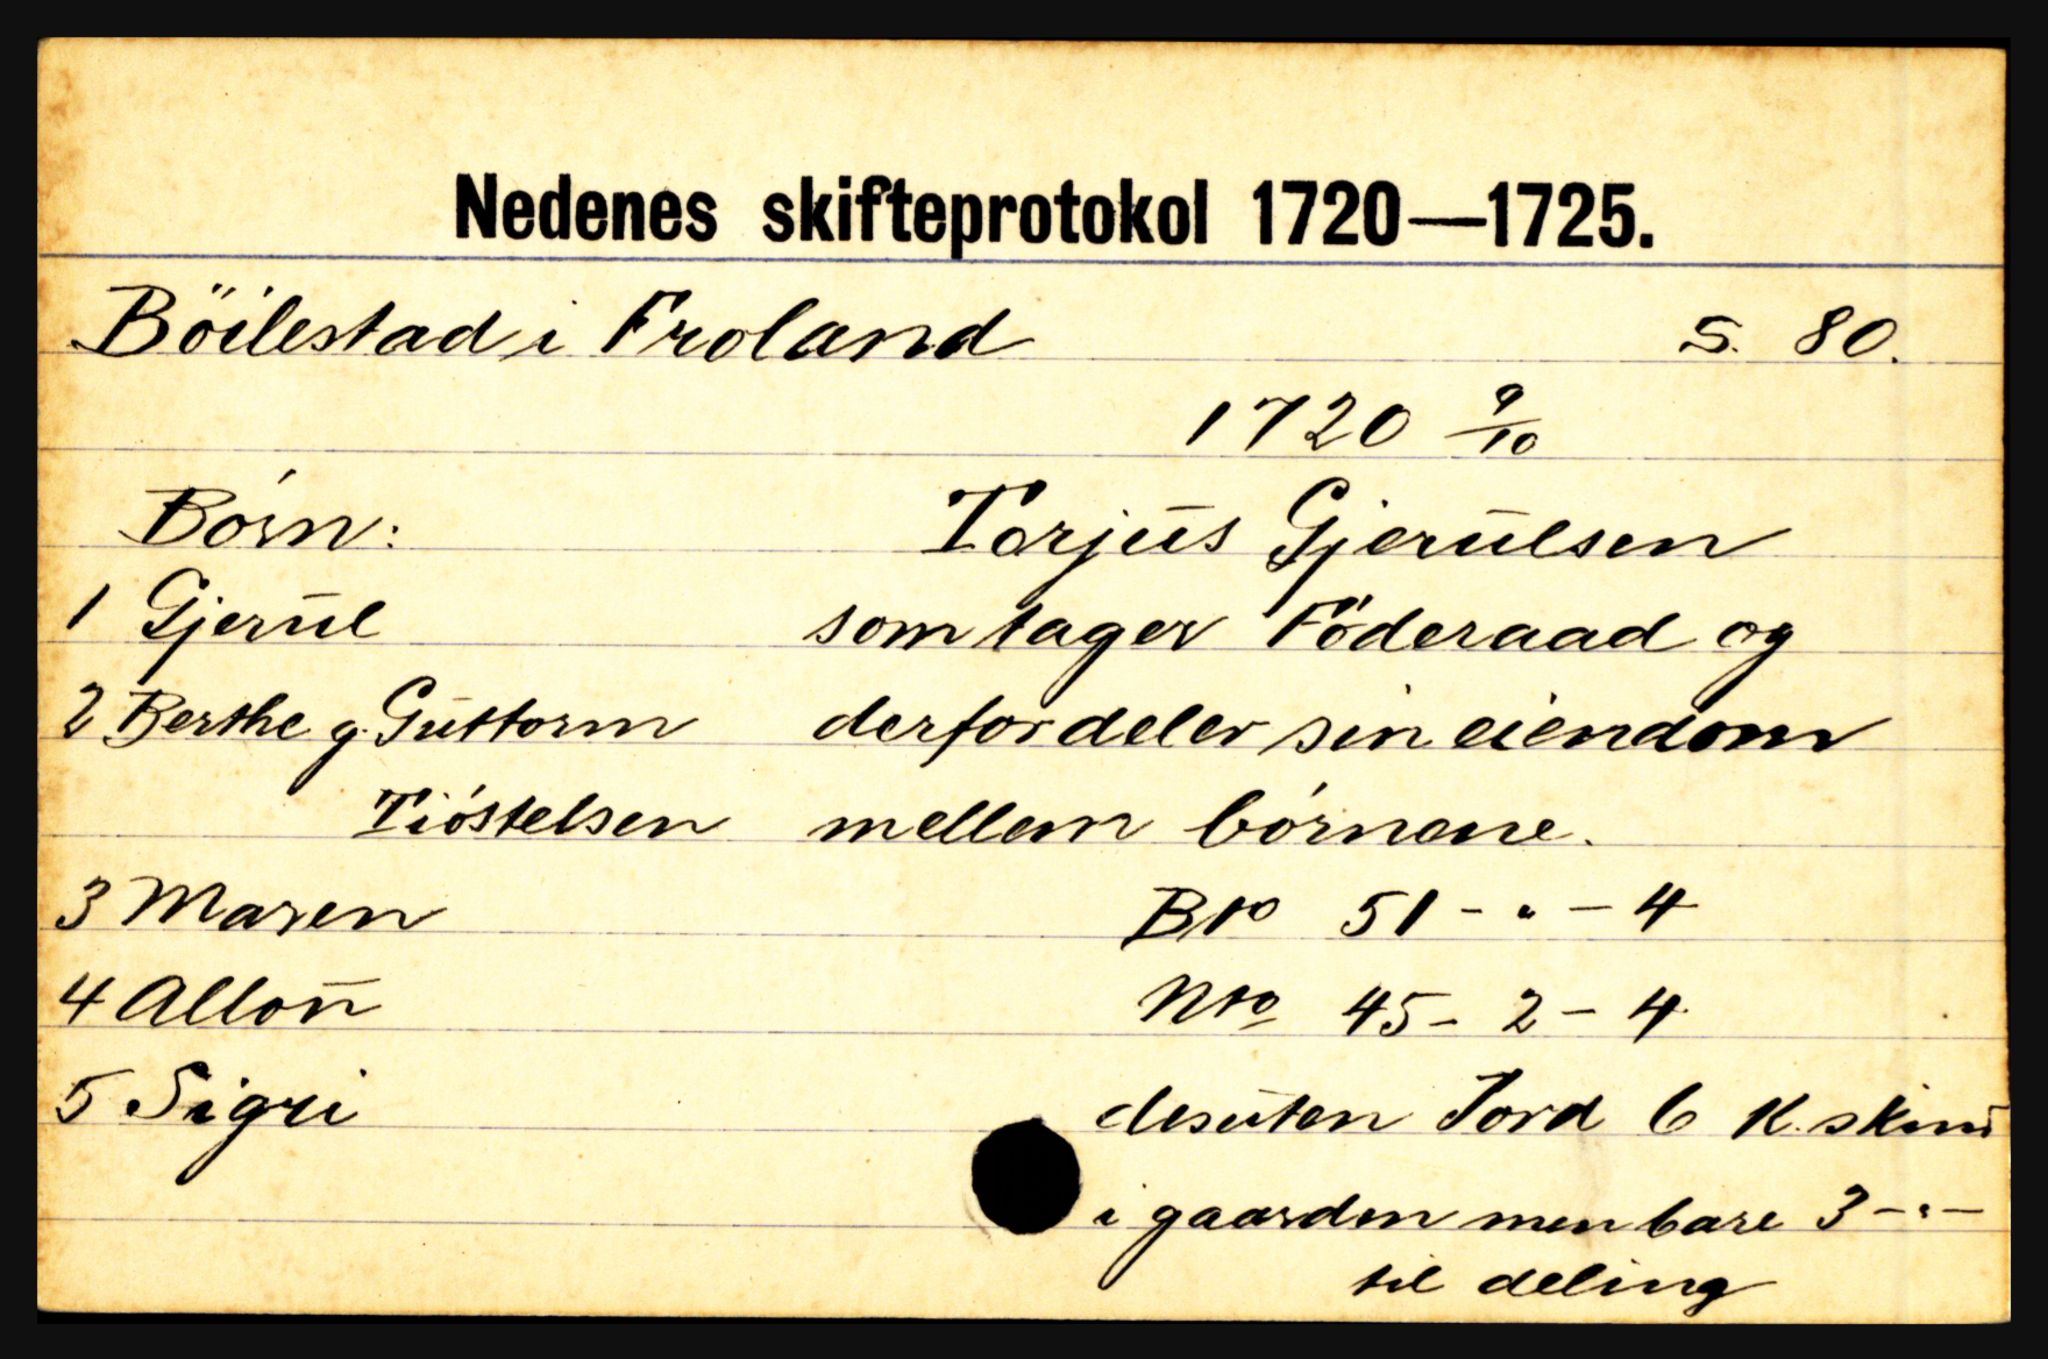 Nedenes skifteprotokol 1720—1725.
Böilestad i Froland S. 80.
1720 9/10
Börn: Torjus Gjerulsen
1 Gjerul som tager Föderaad og
2 Berthe g. Guttorm derfor deler sin eiendom
Tióstelsen mellem börnene.
3 Maren Bto 51 - " - 4
4 Allou Nto 45 - 2 - 4
5 Sigri desuten Jord 6 K. skind
i gaarden men bare 3 - " -
til deling